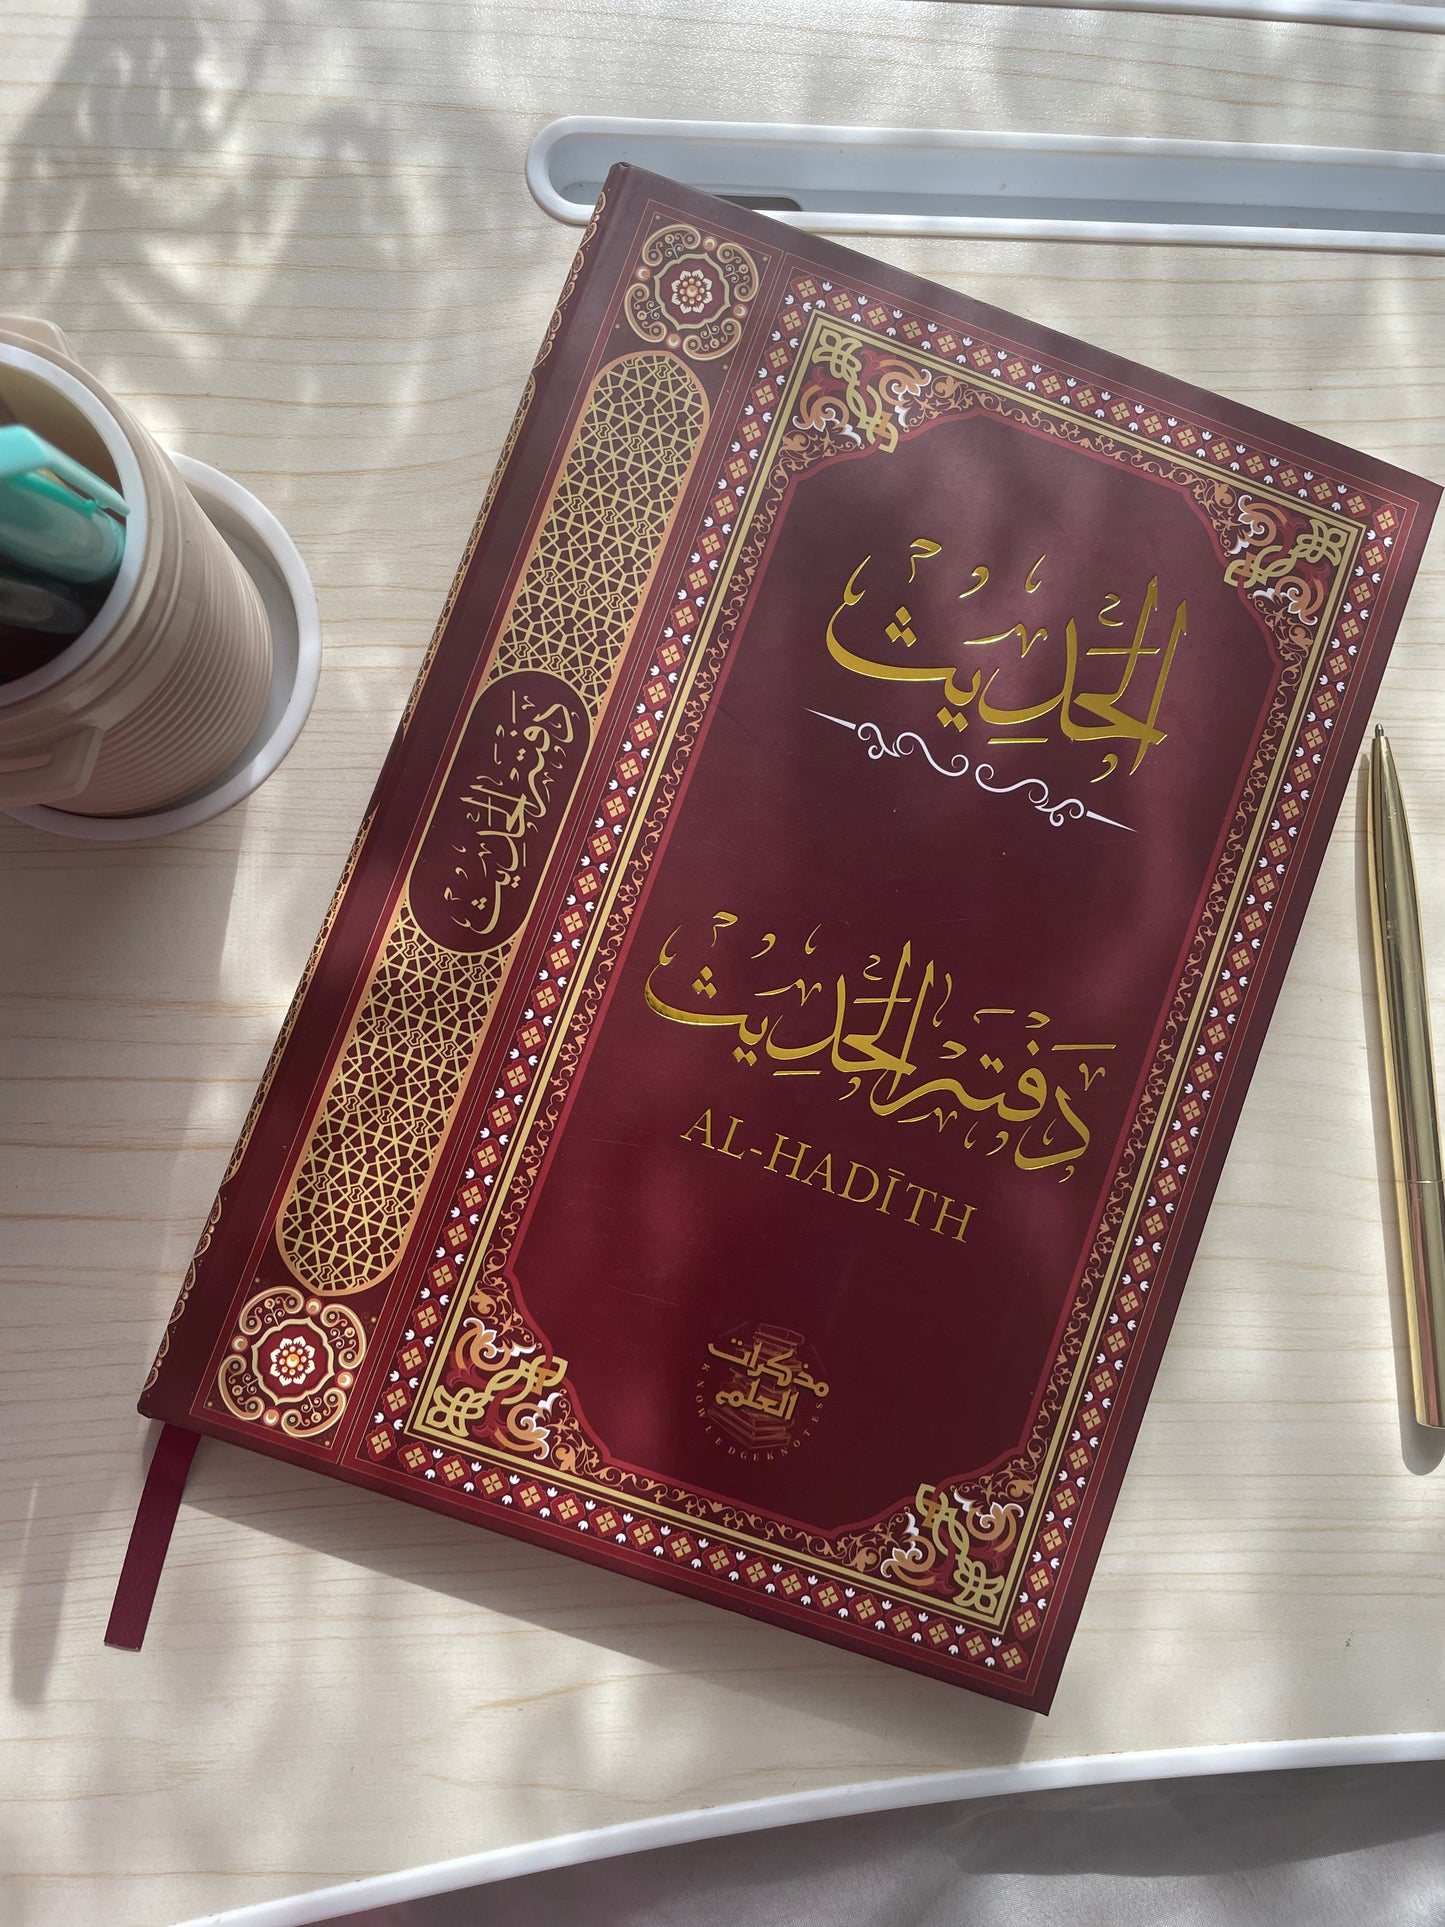 الحديث
دفتر الحديث
AL-HADĪTH
مذكرات
العلم
KNOWLEDGEKNOTES
دفتر الحديث